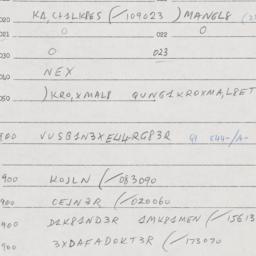 020 KA,C+1LK8ES (/109023 )MANGL8
021 0 022 0
030 0 023
010 NEX
050 )KRO,XMAL8 QUNG1KROXMA,L8ET
800 VUSB1N3XE44-RG83R Q1 E44-/A-
900 KOJLN (/083090
900 CEJN3R (/020060
900 D1K81ND3R 1MK81MEN (/15613
900 3XDAFADOKT3R (/173070